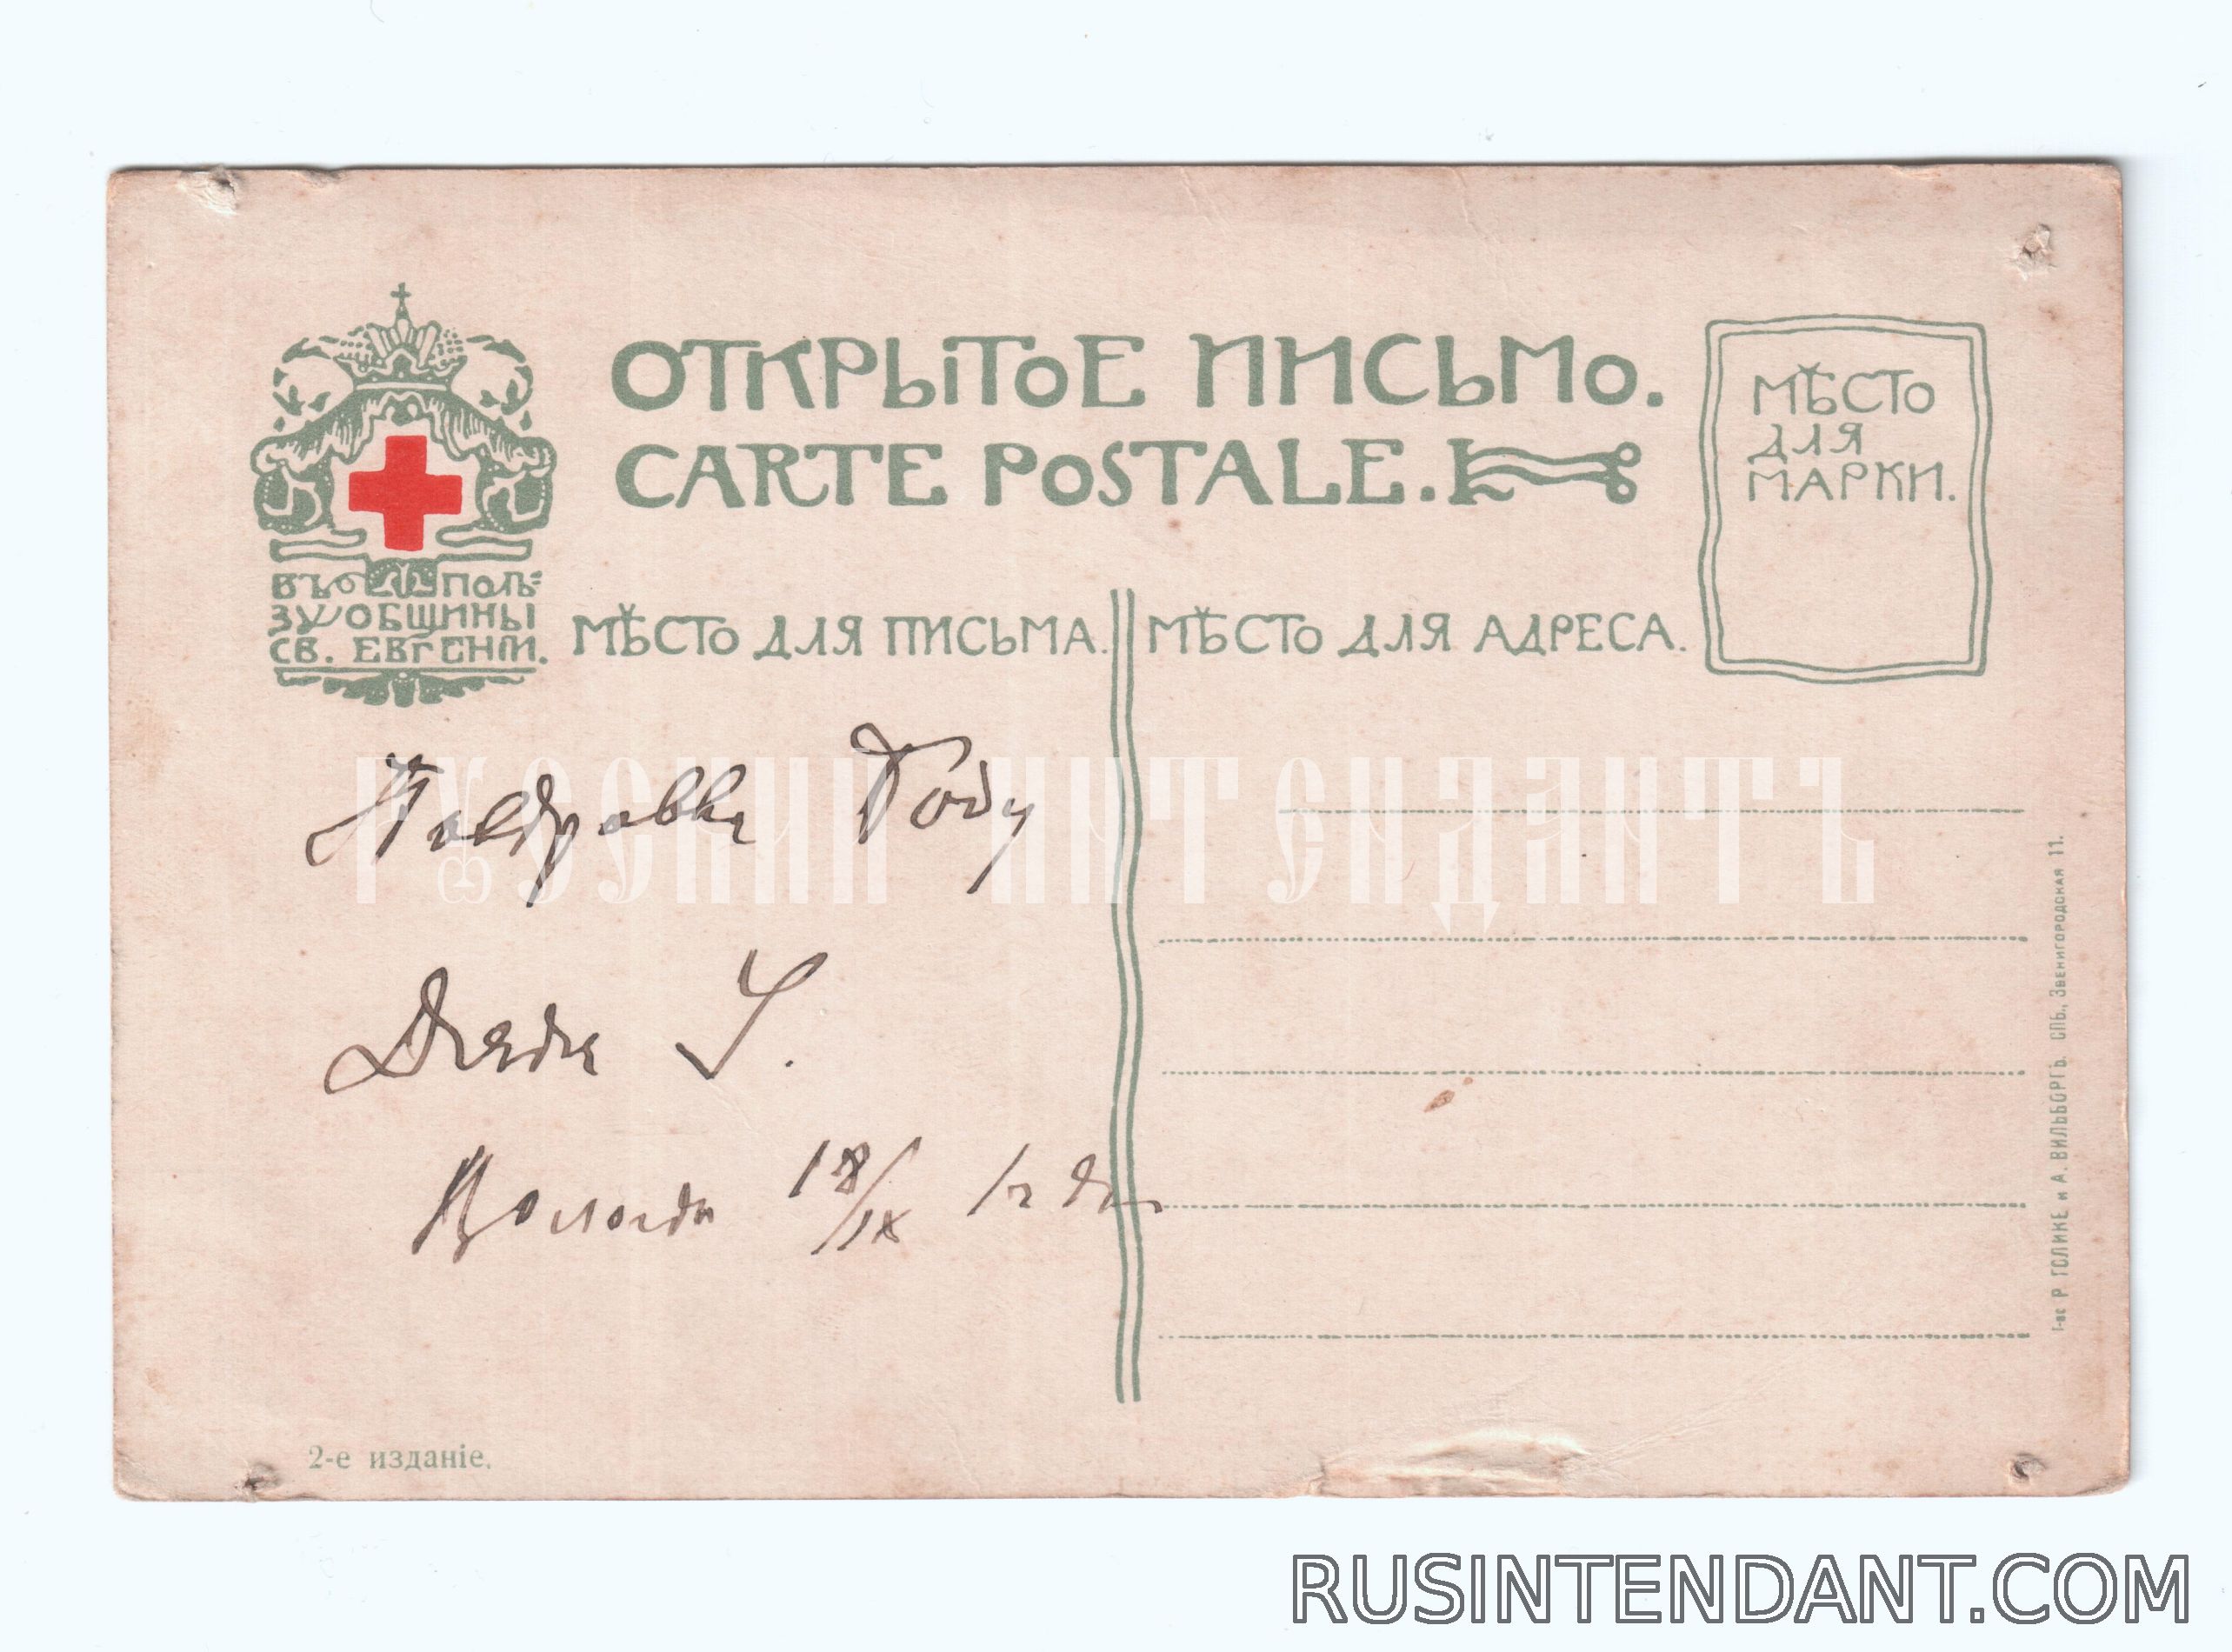 ОТКРЫТОЕ ПИСЬМО.
CARTE POSTALE.
МѢСТО
ДЛЯ
МАРКИ.
ВЪ ПОЛЬ=
ЗУ ОБЩИНЫ
СВ. ЕВГЕНІИ.
МѢСТО ДЛЯ ПИСЬМА.
МѢСТО ДЛЯ АДРЕСА.
РУССКИЙ ИНТЕНДАНТЪ
Дядя
Вологда 18/IX
2-е изданіе.
Т-во Р. ГОЛИКЕ и А. ВИЛЬБОРГЪ. СПБ., Звенигородская 11.
RUSINTENDANT.COM